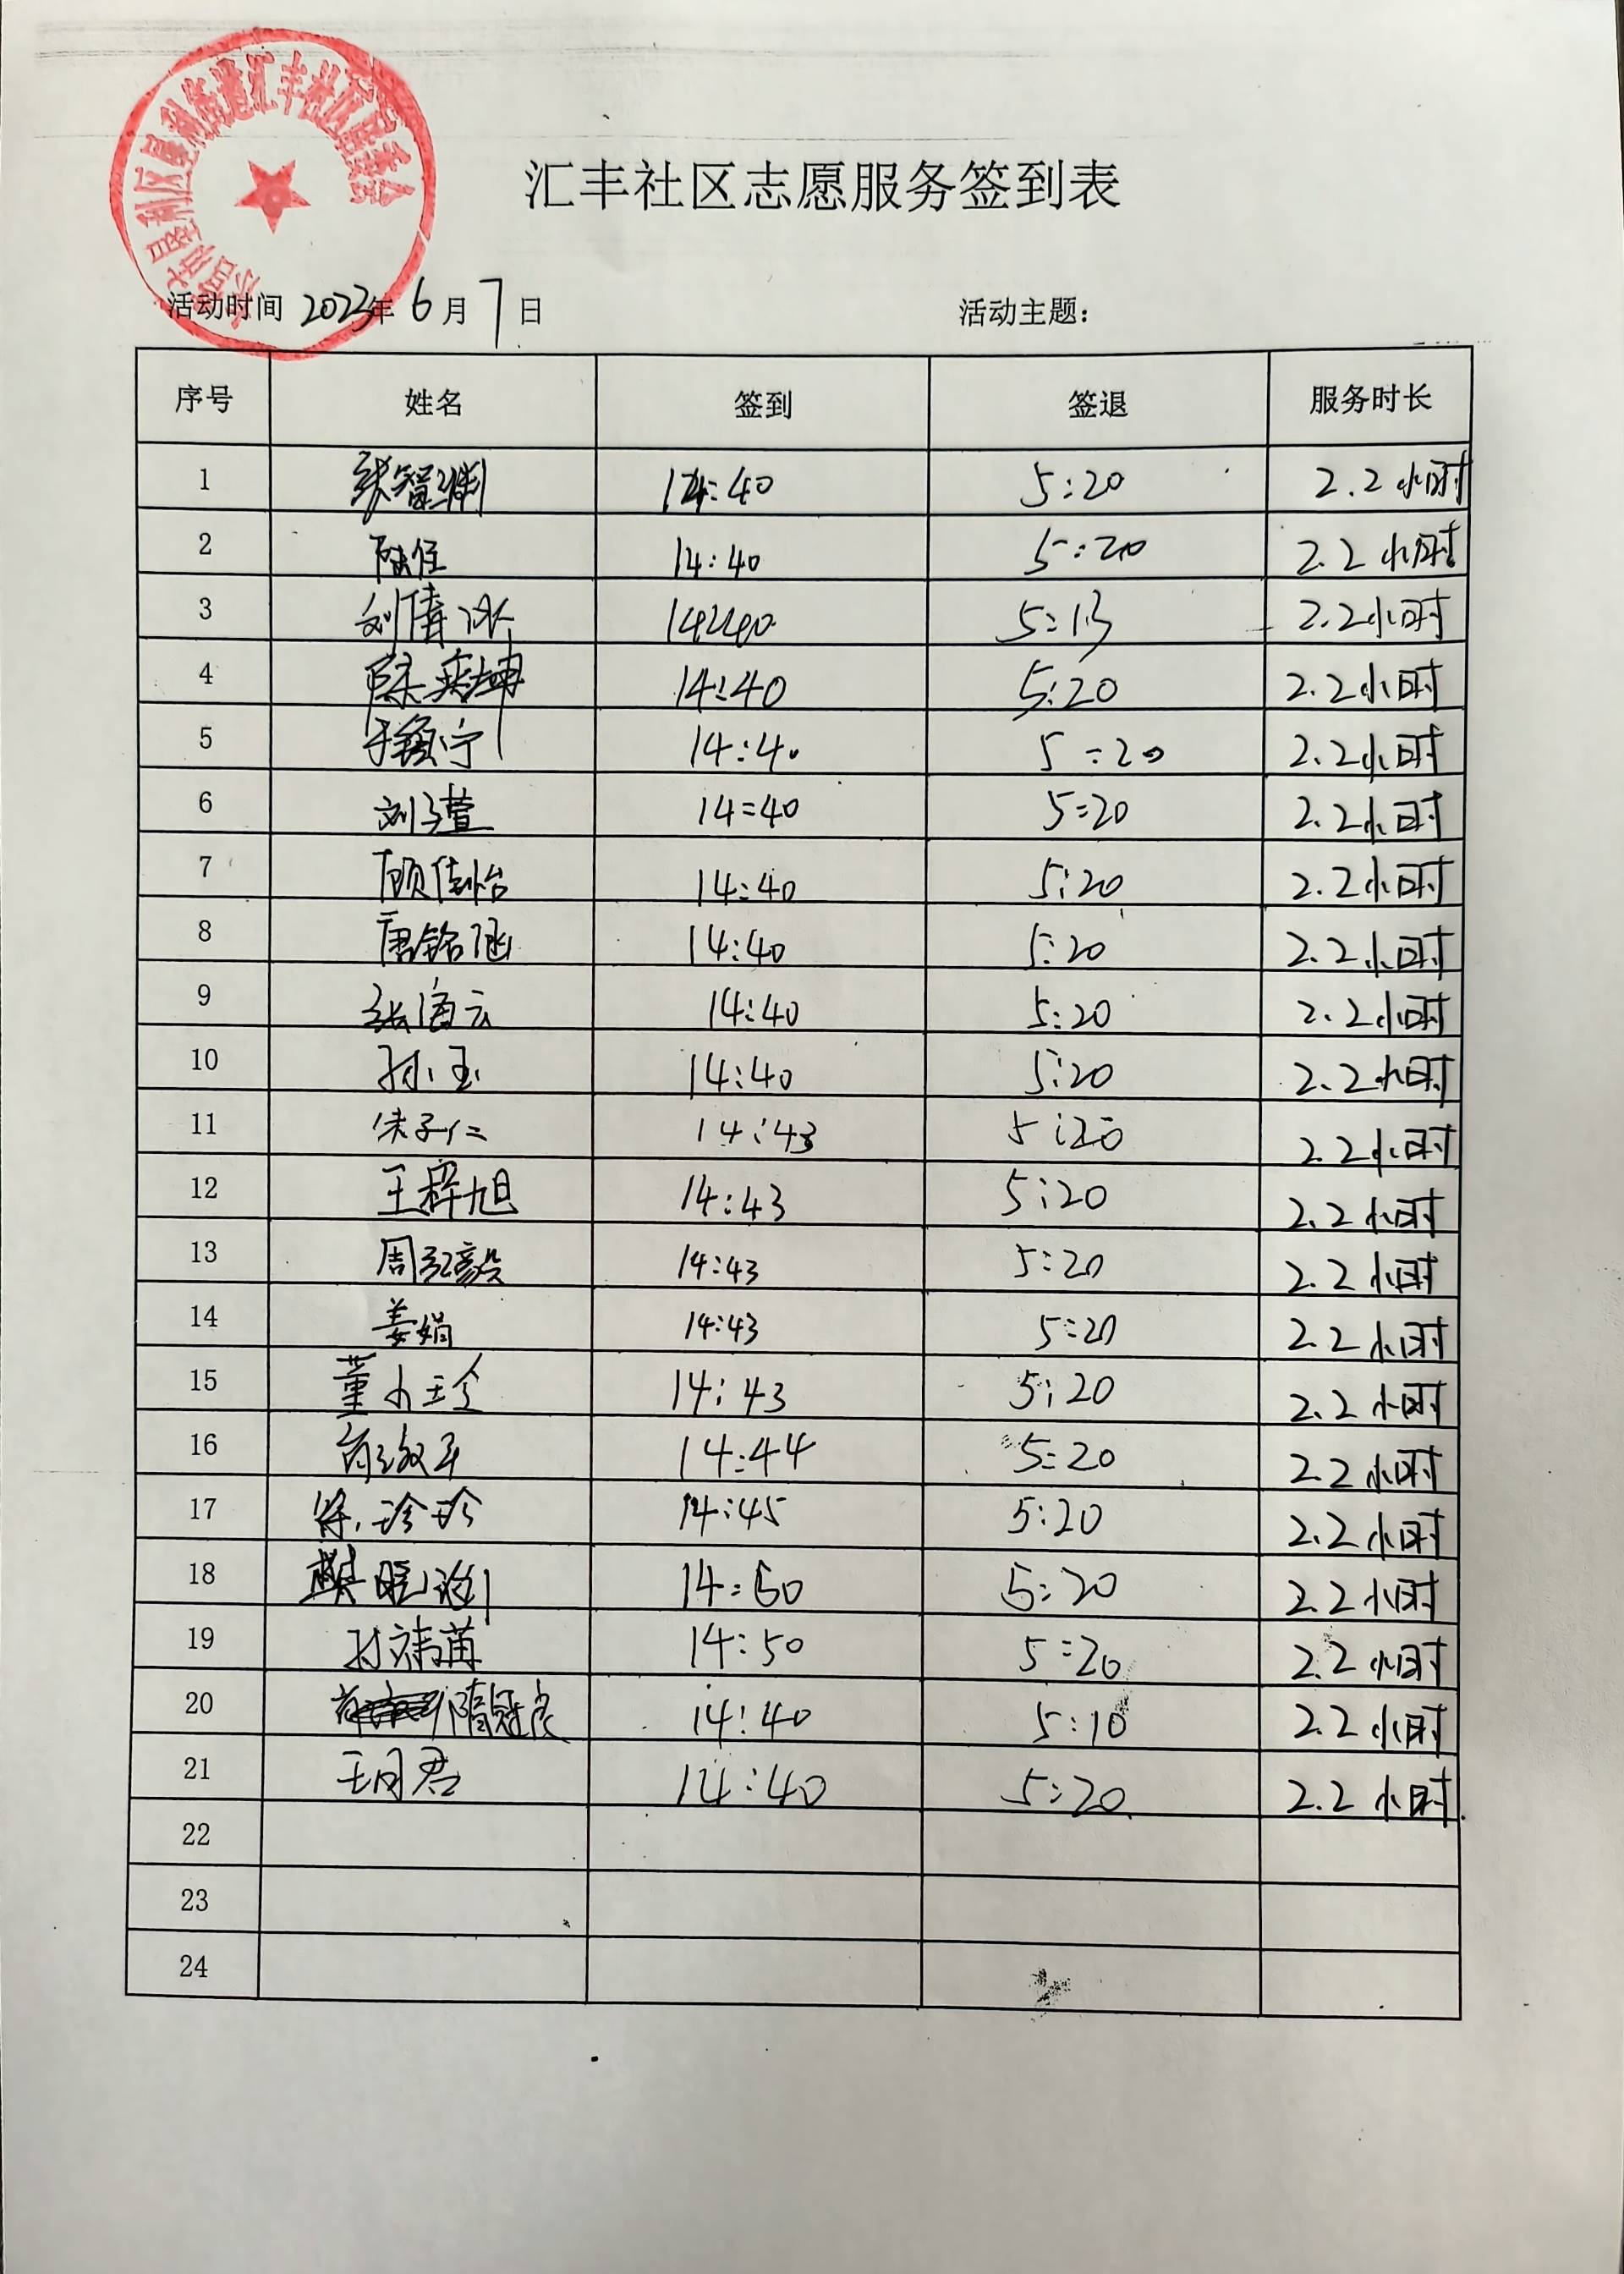 汇丰社区志愿服务签到表
活动时间 2023年 6 月 7 日 活动主题:
序号 姓名 签到 签退 服务时长
1 14:40 5:20 2.2小时
2 陆佳 14:40 5:20 2.2小时
3 刘倩冰 14:40 5:13 2.2小时
4 陈奕坤 14:40 5:20 2.2小时
5 宁 14:40 5:20 2.2小时
6 刘子萱 14:40 5:20 2.2小时
7 顾佳怡 14:40 5:20 2.2小时
8 唐铭涵 14:40 5:20 2.2小时
9 张海云 14:40 5:20 2.2小时
10 孙玉 14:40 5:20 2.2小时
11 朱子仁 14:43 5:20 2.2小时
12 王梓旭 14:43 5:20 2.2小时
13 周弘毅 14:43 5:20 2.2小时
14 姜娟 14:43 5:20 2.2小时
15 董小玲 14:43 5:20 2.2小时
16 14:44 5:20 2.2小时
17 徐珍珍 14:45 5:20 2.2小时
18 14:50 5:20 2.2小时
19 14:50 5:20 2.2小时
20 隋冠良 14:40 5:10 2.2小时
21 王月君 14:40 5:20 2.2小时
22
23
24